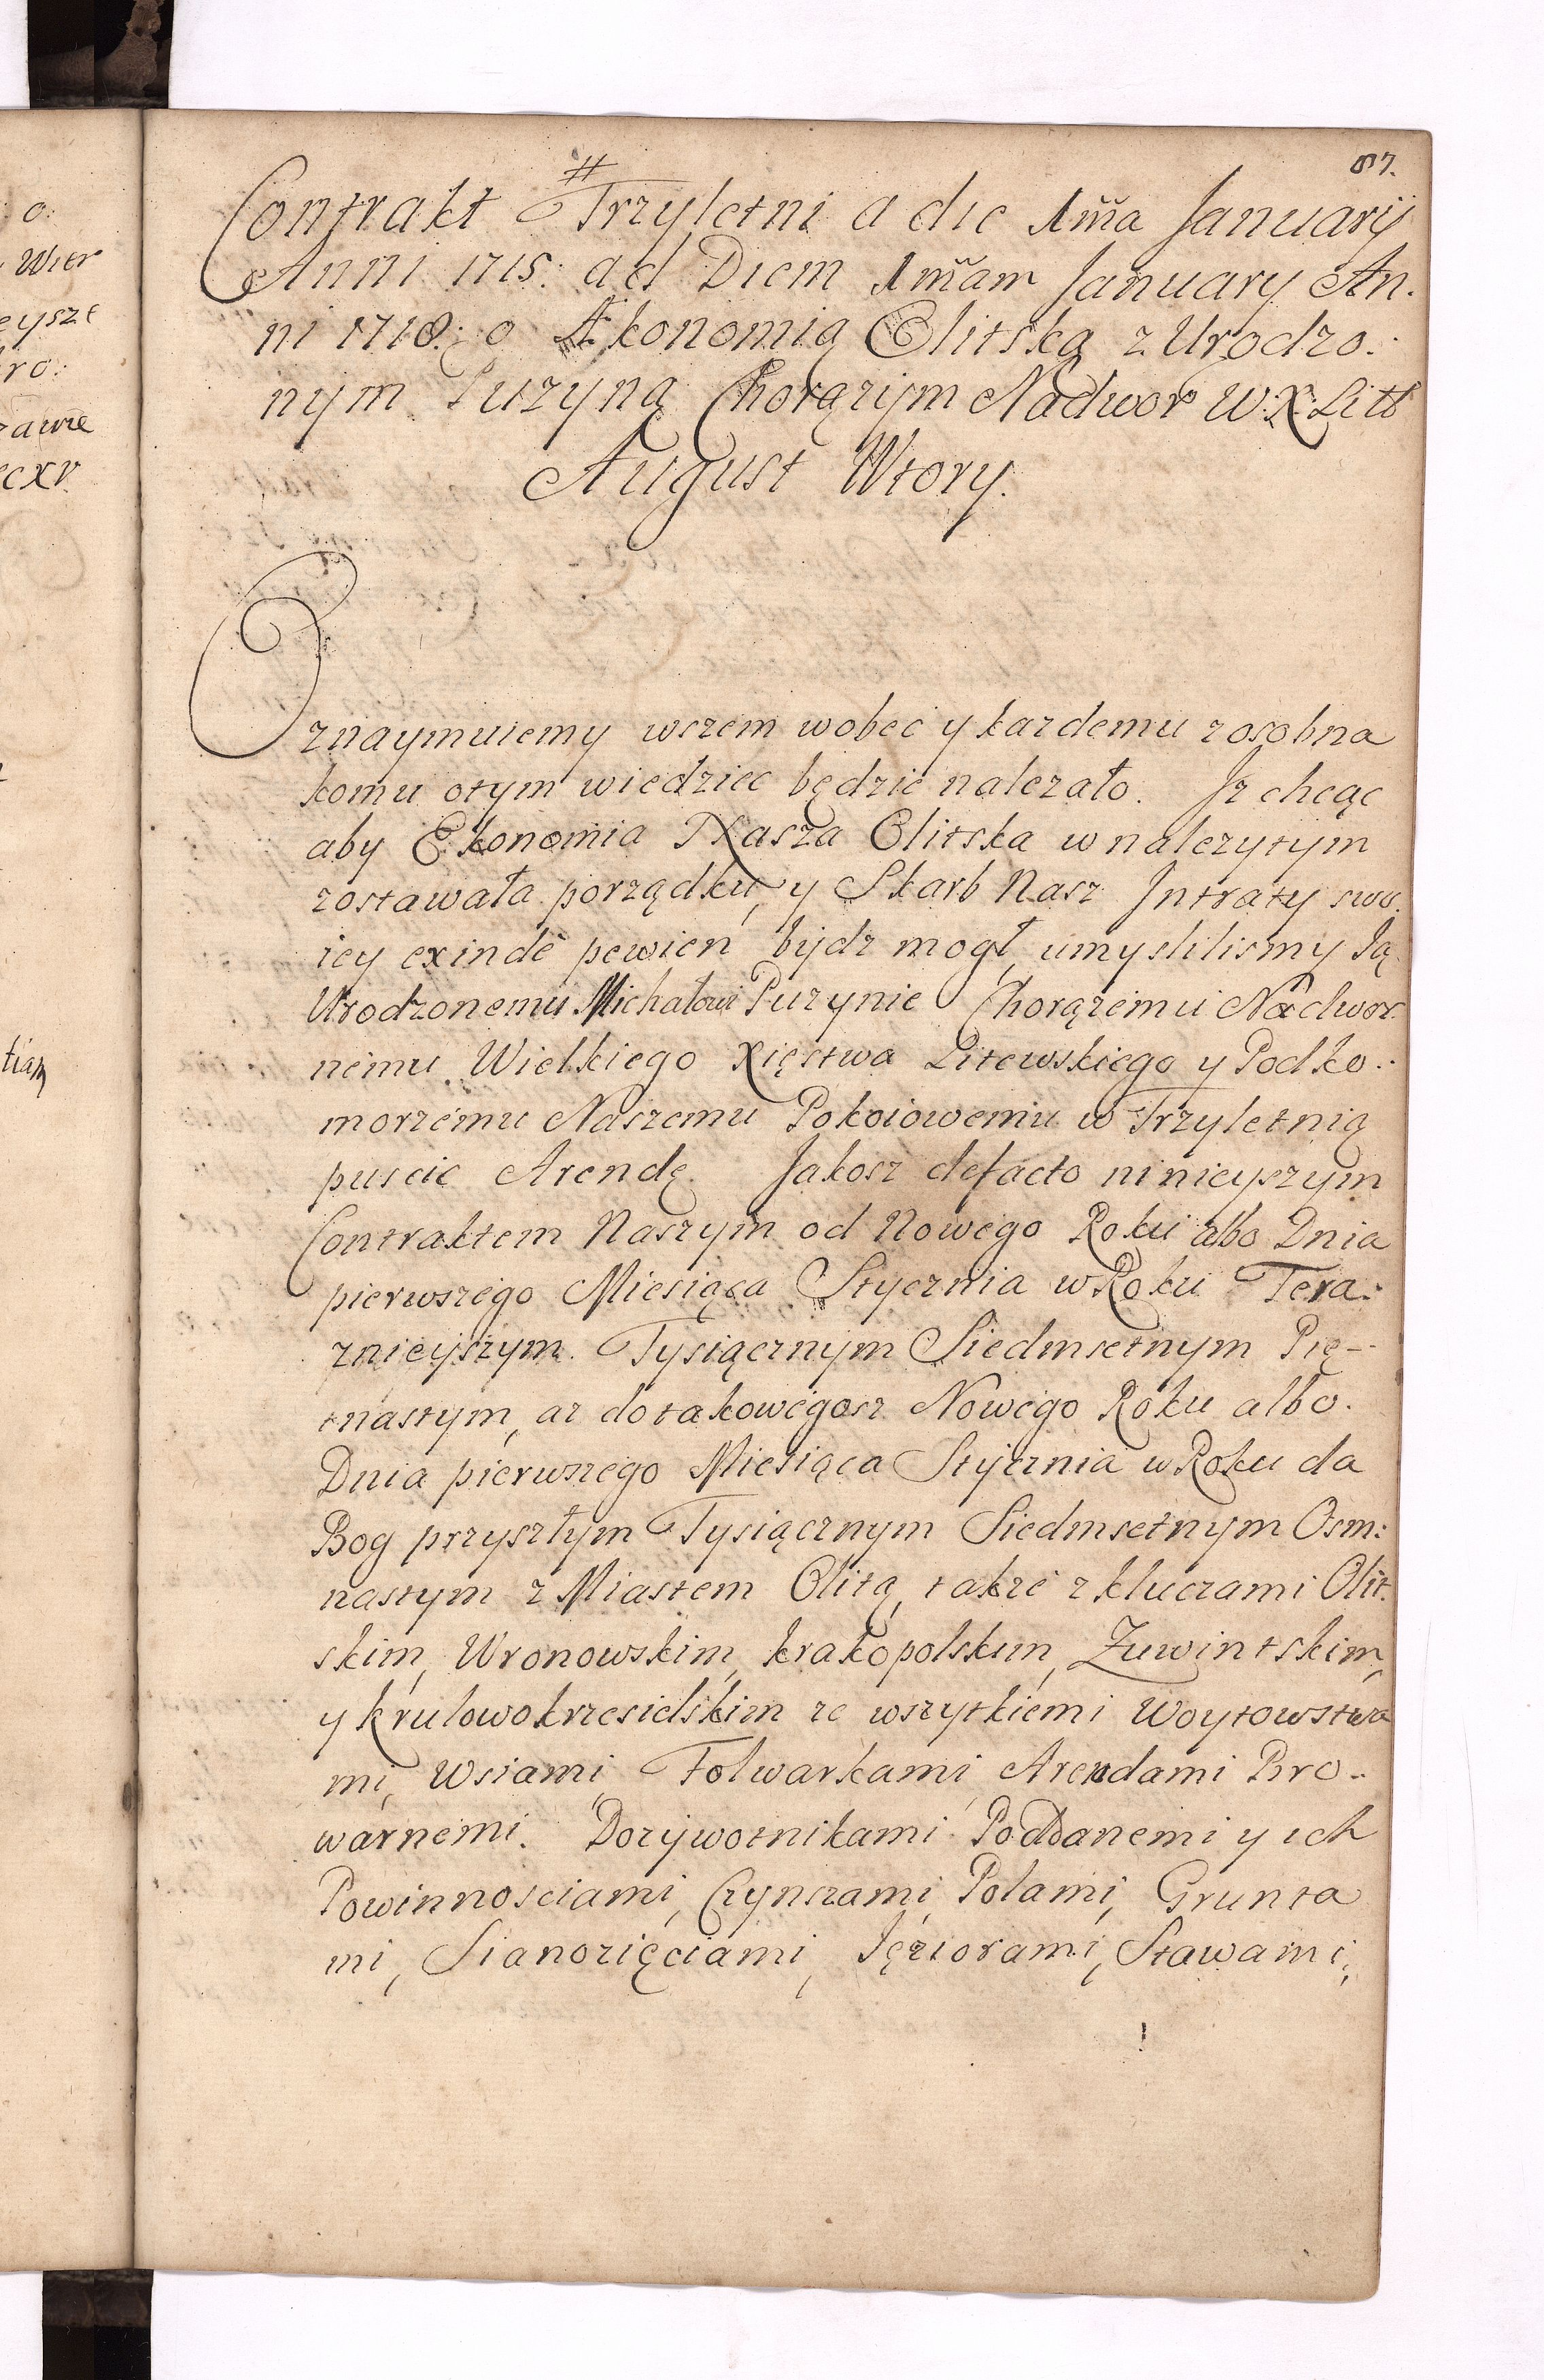 87.
#
Contrakt Trzyletni a die 1ma January
Anni 1715: ad Diem 1mam January An.
ni 1718: o Ækonomią Olitską z Urodzo:
nym Puzyną Chorązym Nadwor W: X: Litt
August Wtory.
Oznaymuiemy wszem wobec y kazdemu zosobna
komu otym wiedziec będzie nalezało. Iz chcąc
aby Ekonomia Nasza Olitska w nalezytym
zostawała porządku, y Skarb Nasz Intraty swo
iey exinde pewien bydz mogł, umyslilismy Ią
Urodzonemu Michałowi Puzynie Chorązemu Nadwor.
nemu Wielkiego Xięstwa Litewskiego y Podko:
morzemu Naszemu Pokoiowemu w Trzyletnią
puscic Arendę. Jakosz defacto ninieyszym
Contraktem Naszym od Nowego Roku albo Dnia
pierwszego Miesiąca Stycznia w Roku Tera:
znieyszym Tysiącznym Siedmsetnym Pię-
tnastym, az do takowegosz Nowego Roku albo.
Dnia pierwszego Miesiąca Stycznia w Roku da
Bog przyszłym Tysiącznym Siedmsetnym Osm:
nastym z Miastem Olitą, takze z kluczami Olit.
skim, Wronowskim, krakopolskim, Zuwintskim,
y krulowokrzesielskim ze wszytkiemi Woytowstwa
mi, Wsiami, Folwarkami, Arendami Bro:
warnemi. Dozywotnikami Poddanemi y ich
Powinnosciami, Czynszami, Polami, Grunta
mi, Sianozięciami, Ięziorami, Stawami,
o:
Wier
eysze
ro:
rawie
ccxv.
tiam